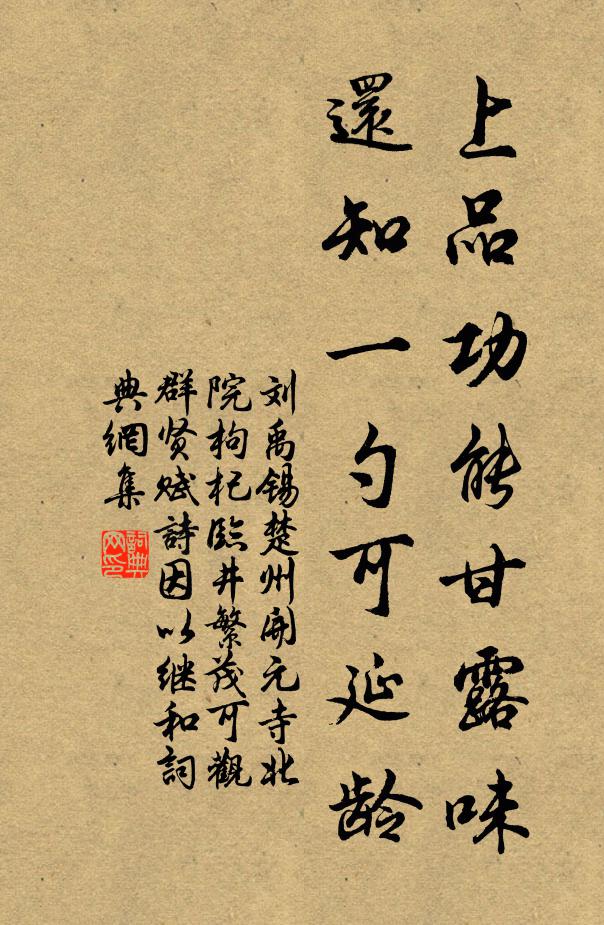 上品功能甘露味
還知一勺可延龄
刘禹锡楚州開元寺北
院枸杞臨井繁茂可觀
群贤赋詩因以继和詞
典網集
詞典
网印